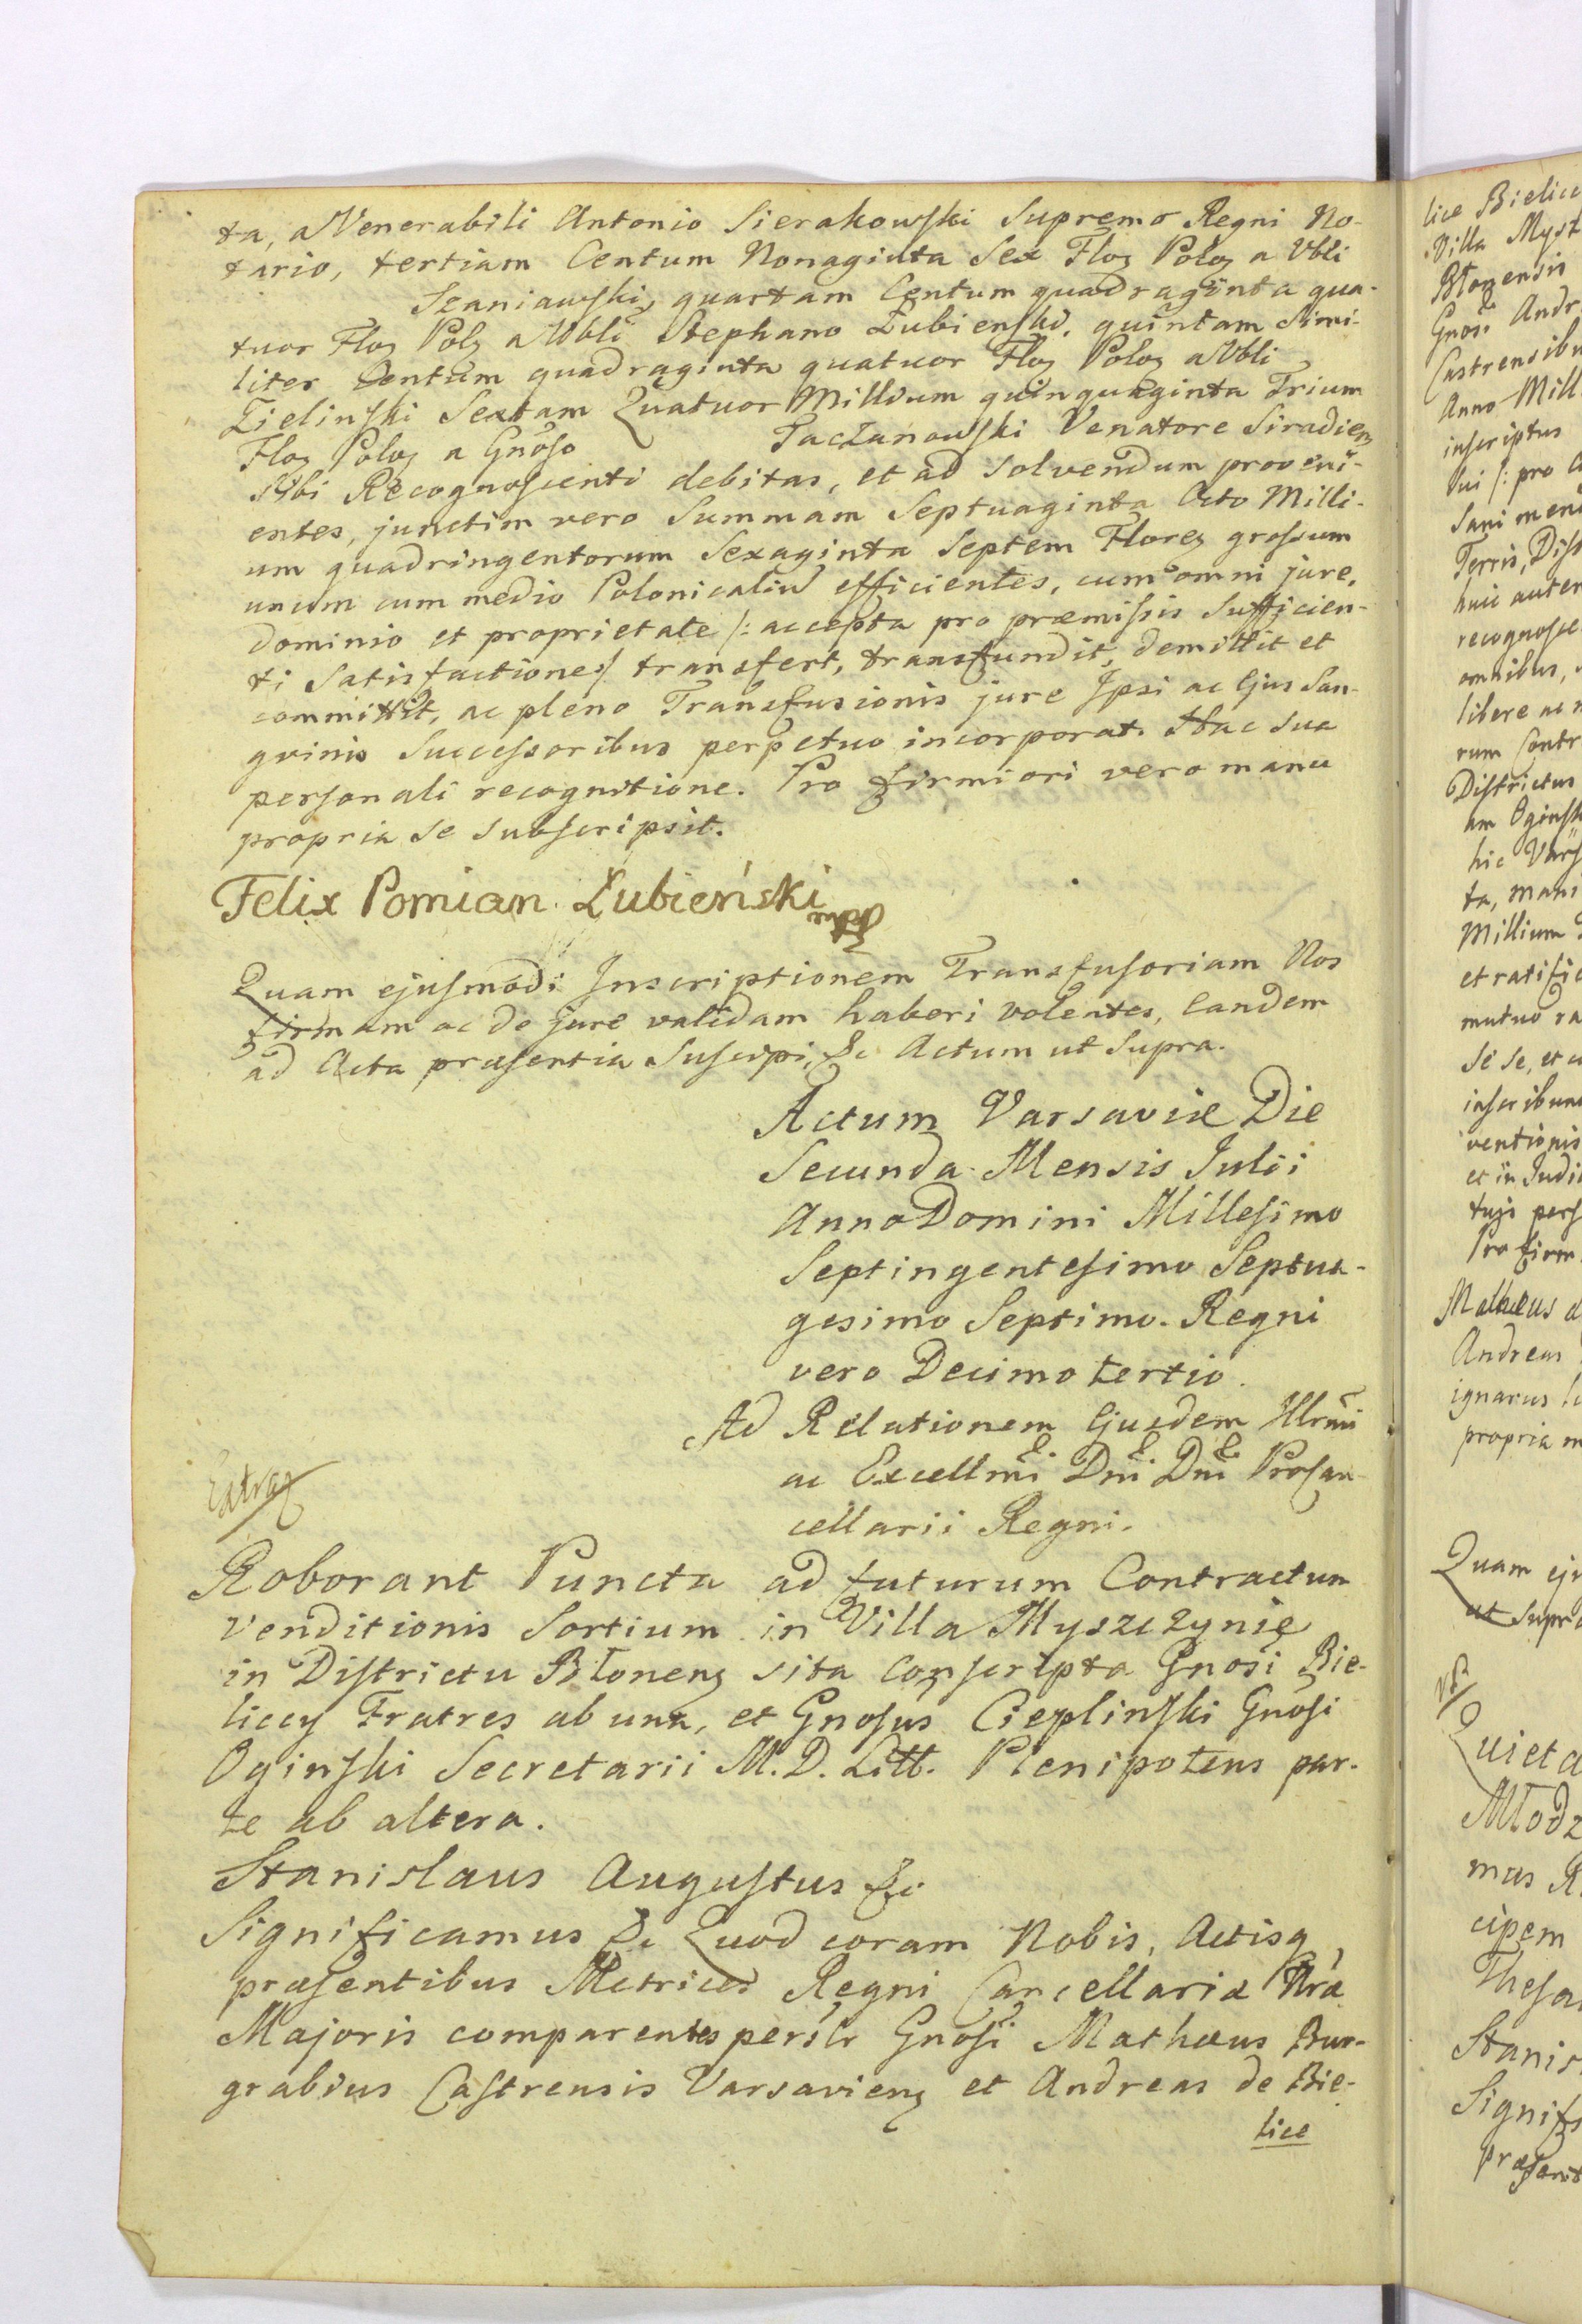 ta, a Venerabili Antonio Sierakowski Supremo Regni No-
tario, tertiam Centum Nonaginta Sex Floz Poloz a Vbli
Szaniawski, quartam Centum quadraginta qua-
tuor Floz Polz a Vbli Stephano Łubienski, quintam Simi-
liter Centum quadraginta quatuor Floz Poloz a Vbli
Zielinski Sextam Quatuor Millium quinquaginta Trium
Floz Poloz a Gnoso Taczanowski Venatore Siradienz
sibi Recognoscenti debitas, et ad solvendum proveni-
entes, junctim vero Summam Septuaginta Octo Milli-
um quadringentorum Sexaginta Septem Florez grossum
unum cum medio Polonicaliu efficientes, cum omni jure,
dominio et proprietate /: accepta pro præmissis Sufficien-
ti Satisfactione :/ transfert, transfundit, demittit et
committit, ac pleno Transfusionis jure Ipsi ac Ejus San-
gvinis Successoribus perpetuo incorporat. Hac sua
personali recognitione. Pro firmiori vero manu
propria se subscripsit.
Felix Pomian Łubieński mpp
Quam ejusmodi Inscriptionem Transfusoriam Nos
firmam ac de jure validam haberi volentes, Eandem
ad Acta præsentia Suscipi, &c Actum ut supra.
Actum Varsaviæ Die
Secunda Mensis Julii
Anno Domini Millesimo
Septingentesimo Septua-
gesimo Septimo. Regni
vero Decimo tertio.
Ad Relationem Ejusdem Illrmi
ac Excellmi Dni Dni Procan-
cellarii Regni.
Extraz
Roborant Puncta ad futurum Contractum
Venditionis Sortium in Villa Myszczynie
in Districtu Błonenz sita conscripta Gnosi Bie-
liccy Fratres ab una, et Gnosus Cieplinski Gnosi
Oginski Secretarii M. D. Litt. Plenipotens par-
te ab altera.
Stanislaus Augustus &c
Significamus &c Quod coram Nobis, Actisq
præsentibus Metrices Regni Cancellariæ Nra
Majoris comparentes persлr Gnosi Mathæus Bur-
grabius Castrensis Varsavienz et Andreas de Bie-
lice
lice Bielic
Villa Myst
Gnosi Andr
Castrensibu
Anno Mill
inscriptus
Sani men
Terris, Dist
huic auter
recognosce
omnibus,
libere ac
rum Contr
Districtus
am Oginsk
hic Vars
ta, mani
Millium
et ratific
mutuo ra
se se, et
inscribun
ventionis
et in Judi
pers
Pro firm
Mathæus
Andreas
ignarus
propria m
Quam ej
ut supra
Quieta
Młodz
mus R
cipem
Thesa
Stanis
Signifi
præsent